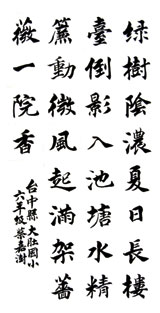 綠樹陰濃夏日長樓
臺倒影入池塘水精
簾動微風起滿架薔
薇一院香
台中縣大肚國小
六年級蔡嘉